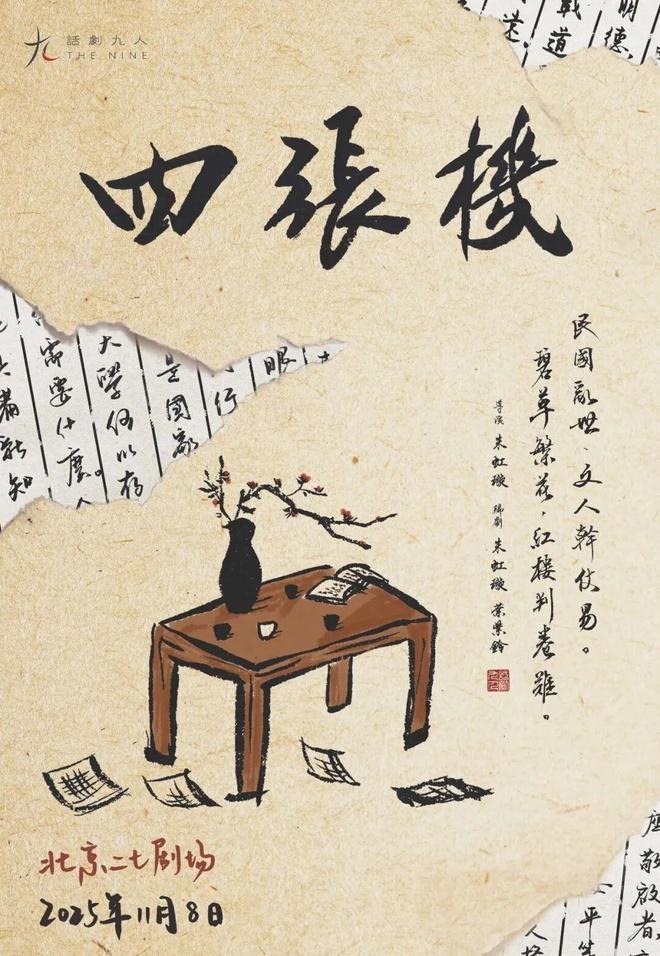 話劇九人
THE NINE
明德
戰道
四張機
民國亂世、文人幹仗易。
碧草繁花，紅樓判卷難。
导演 朱虹璇 編劇 朱虹璇 葉紫鈴
眼
行
是國家
大學何以存
需要什麼。
備新知
北京二七剧场
2025年11月8日
敬啟者
平等
人格